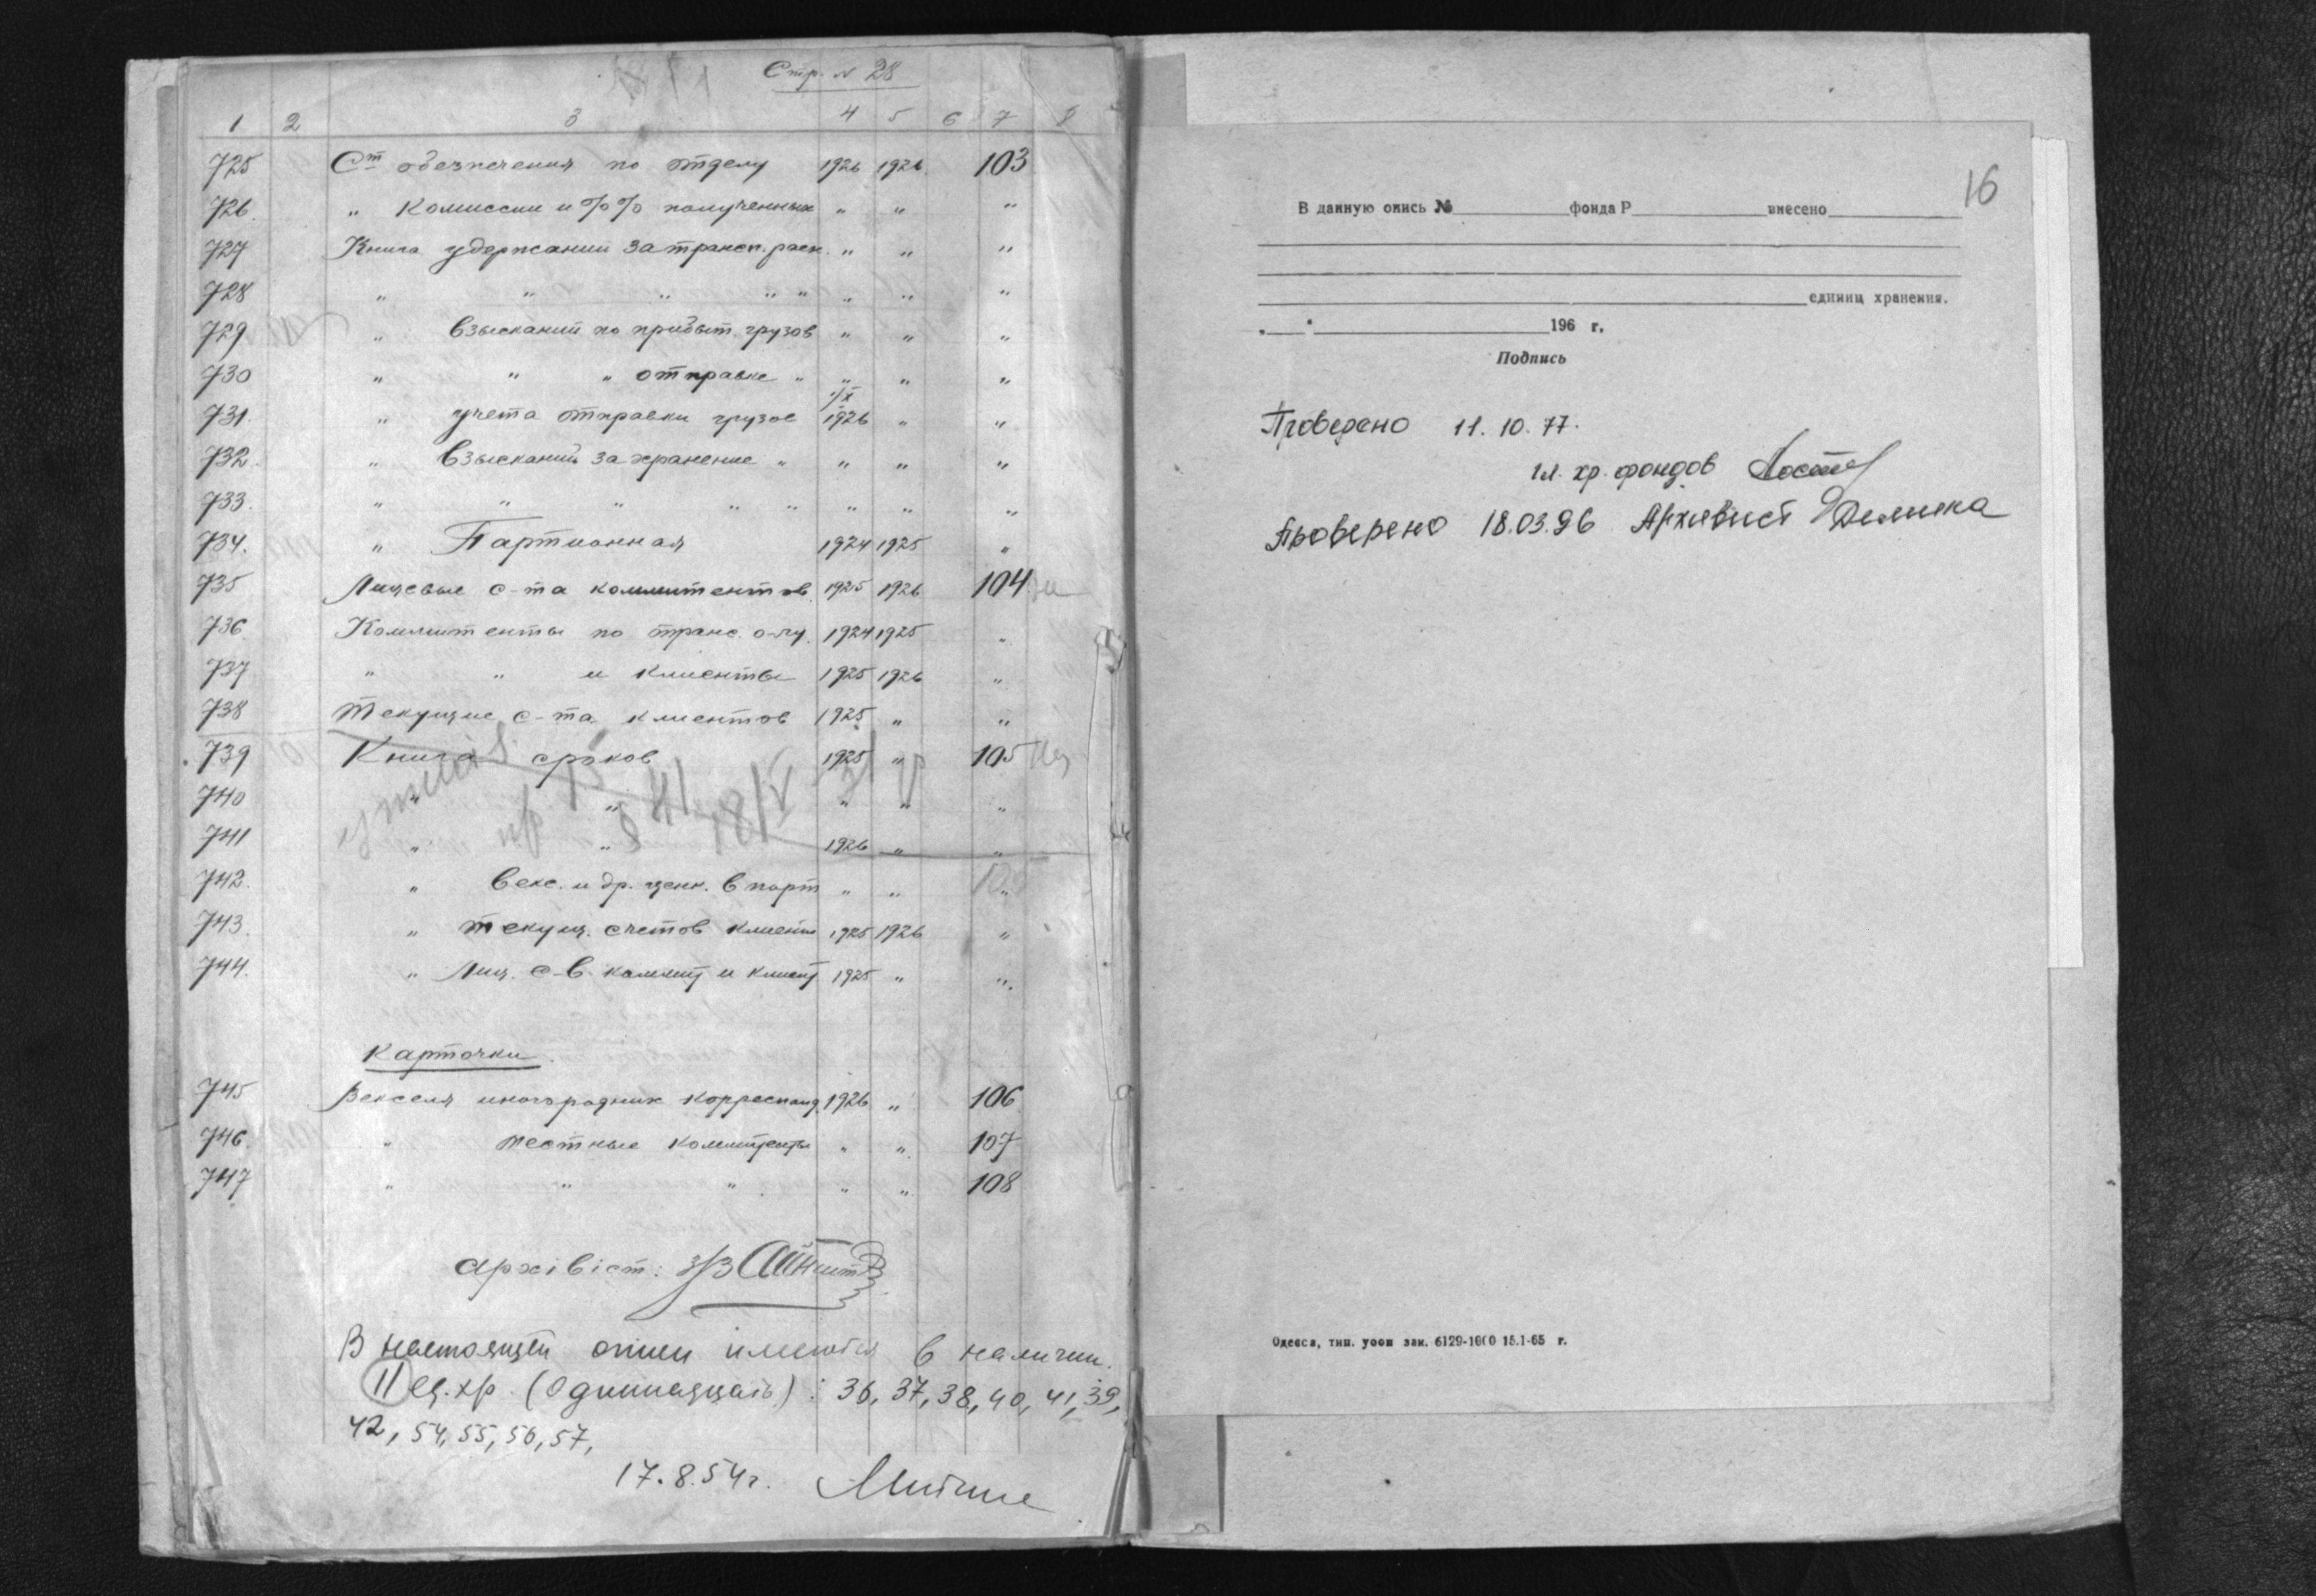 Стр. N 28
1 2 3 4 5 6 7 8
725 Ст обезпечения по отделу 1926 1926 103
726. " Комиссии и %% полученных " " "
727 Книга удержаний за трансп. расх. " " "
728 " " " " " " " "
729 " Взысканий по прибыт. грузов " " "
730 " " " отправке " " " "
1/X
731. " учета отправки грузов 1926 " "
732. " Взысканий за хранение " " " "
733. " " " " " " " "
734. " Партионная 1924 1925 "
735 Лицевые с-та коммитентов 1925 1926 104
736 Коммитенты по транс. о-лу. 1924 1925 "
737 " " и клиенты 1925 1926 "
738 Текущие с-та клиентов 1925 " "
739 Книга сроков 1925 " 105
740 " " " " "
741 " " 1926 " "
742. " Векс. и др. ценн. в порт " " "
743. " текущ. счетов клиент 1925 1926 "
744. " Лиц. с-в коммит и клиент 1925 " "
Карточки.
745 Векселя иногородних корреспонд. 1926 " 106
746. " местные коммитенты " " 107
747 " " " " " 108
архівіст:
В настоящей описи имеются в наличии.
11 ед. хр. (Одиннадцать): 36, 37, 38, 40, 41, 39,
42, 54, 55, 56, 57,
17.8.54 г.
16
В данную опись № фонда Р внесено
единиц хранения.
" " 196 г.
Подпись
Проверено 11.10.77.
гл. хр. фондов
Проверено 18.03.96 Архивист
Одесса, тип. уооп зак. 6129-1000 15.1-65 г.